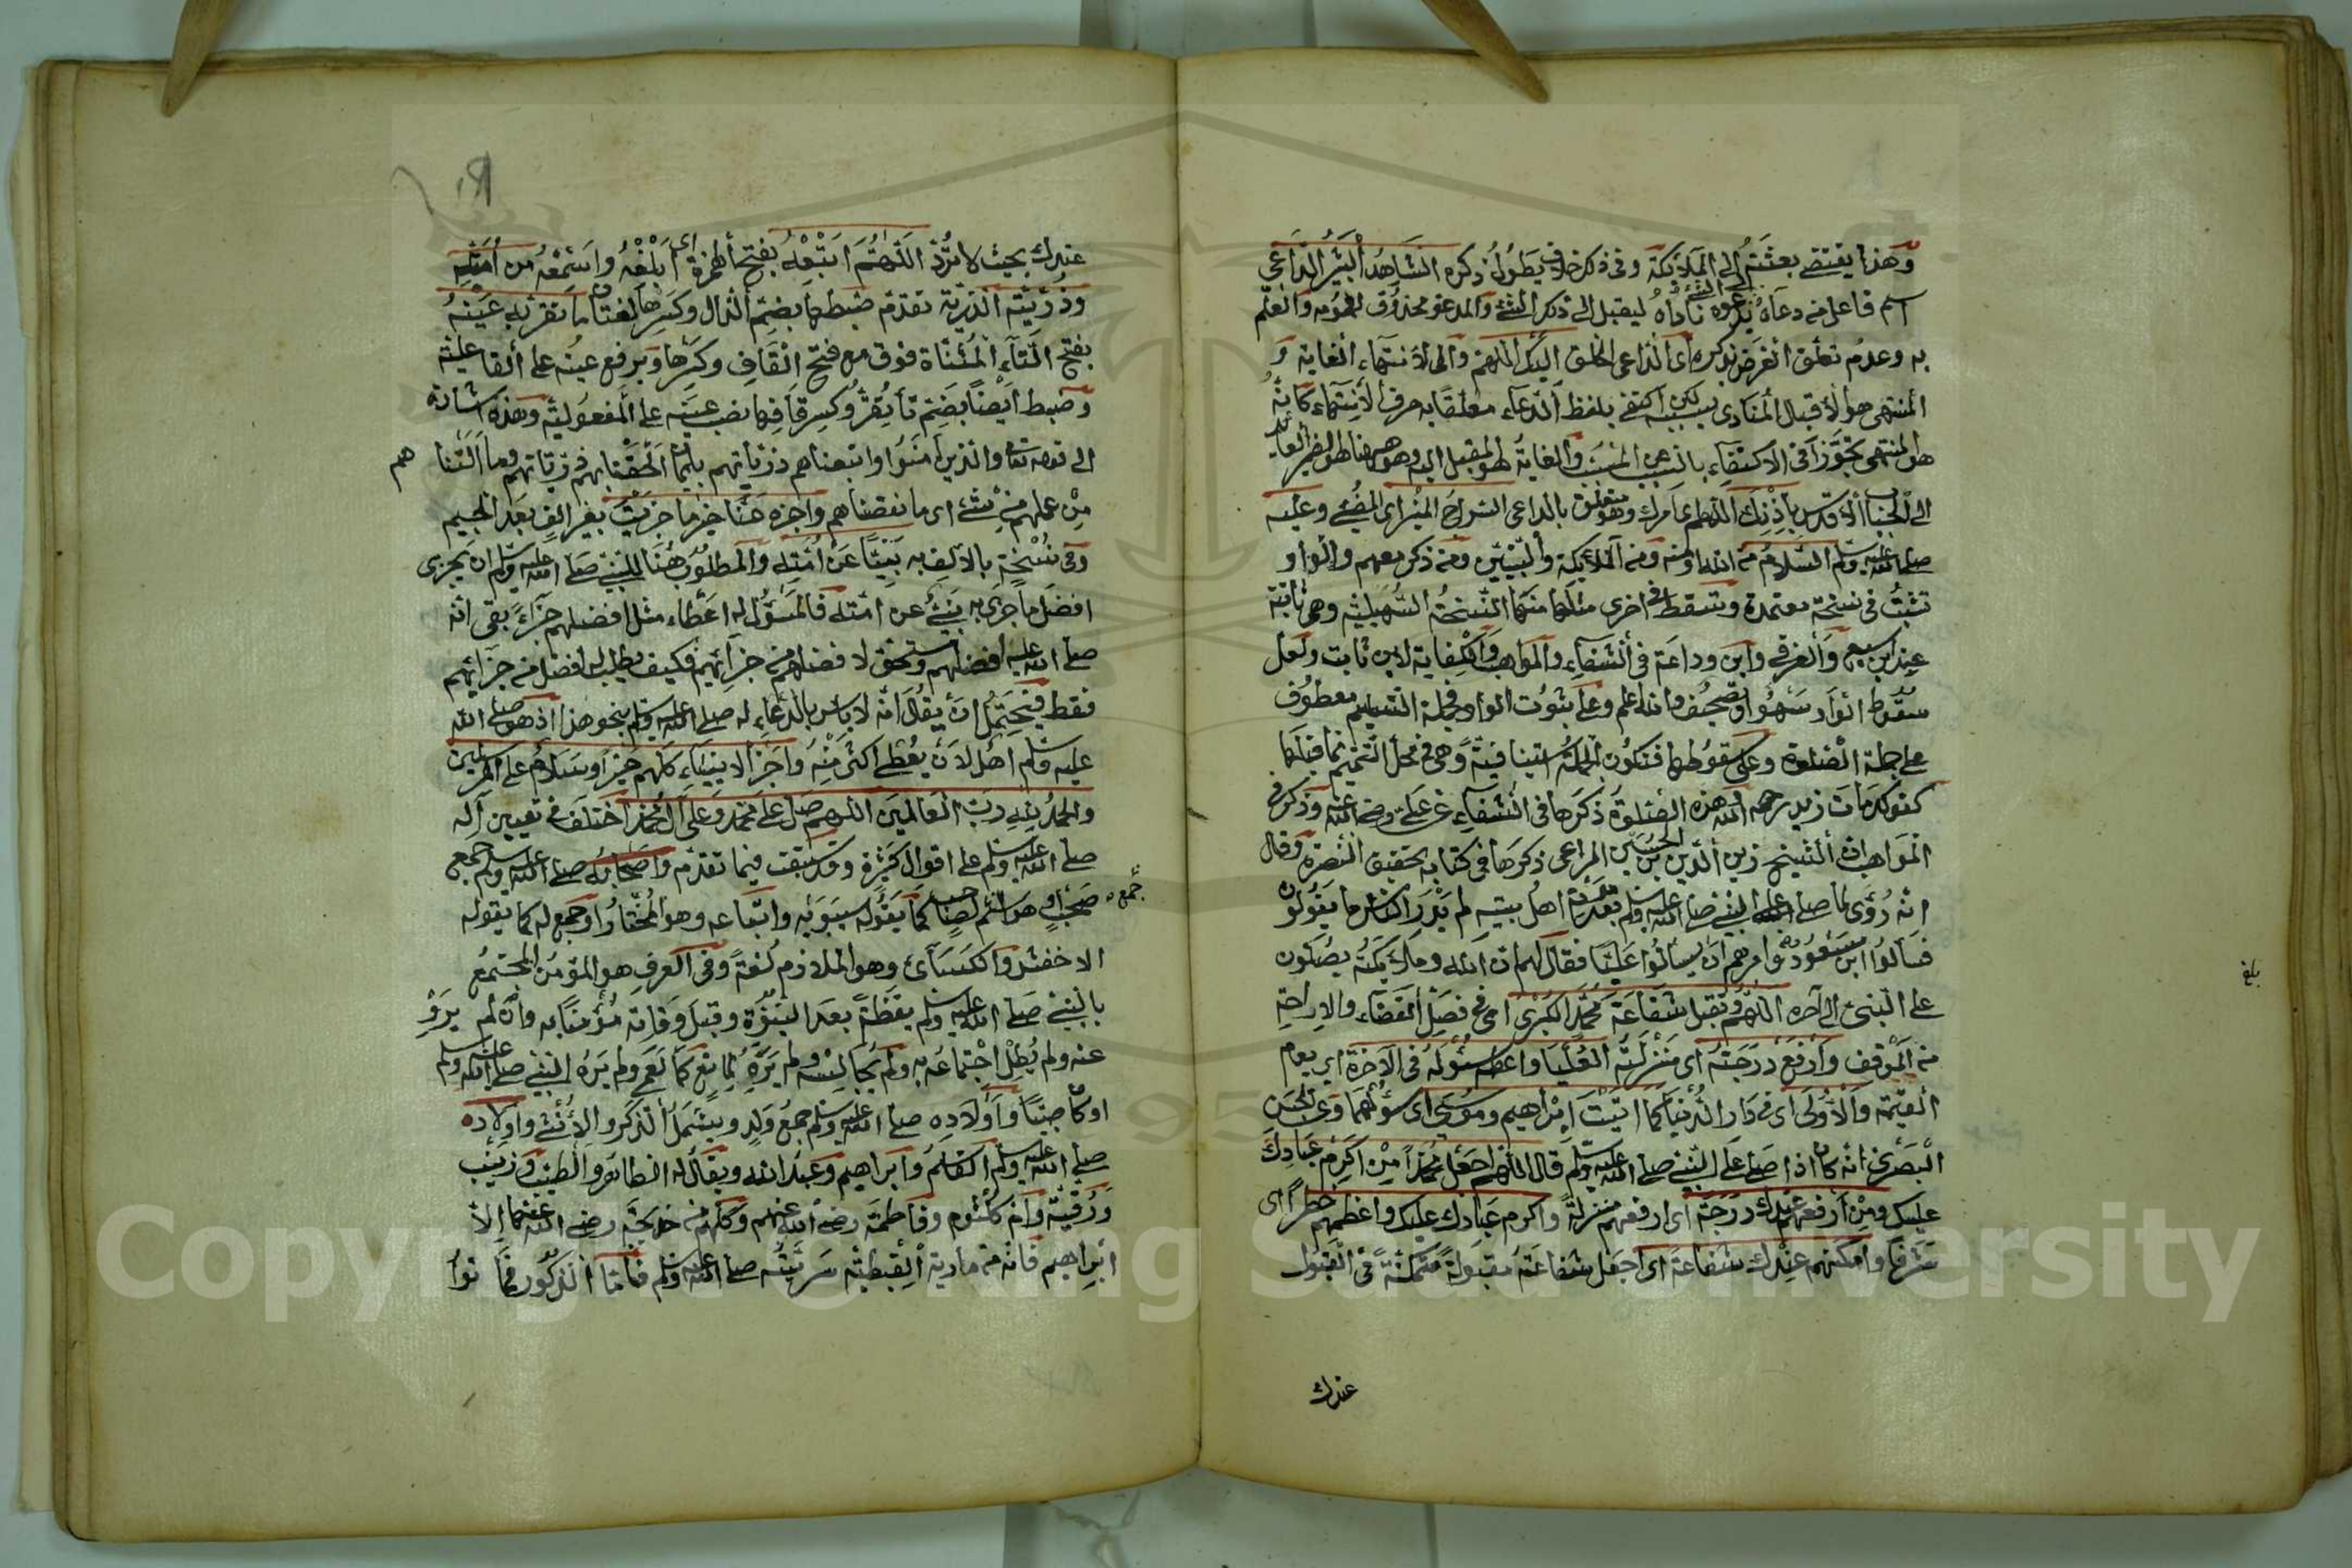 وهذا يقتضي بعثته إلى الملائكة وفي ذكر خلاف يطول ذكره الشاهد البشير الداعي
اسم فاعل من دعاه يدعوه ناداه ليقبل إلى ذكر الشئ والمدعو محذوف للعموم والعلم
به وعدم تعلق الغرض بذكره أي الداعي الخلق اليك اللهم والى لانتهاء الغاية و
المنتهى هو الاقبال المنادى بسببه لكن اكتفى بلفظ الدعاء متعلقا به حرف الانتهاء كأنه
هو المنتهى تجوزا في الاكتفاء بالسبب عن المسبب والغاية هو المقبل اليه وهو هنا
الى الجناب الاقدس باذنك اللهم اي امرك وهو متعلق بالداعي السراج المنير اي المضئ وعليه
صلى الله عليه وسلم السلام من الله ومنه ومن الملائكة والنبيين ومن ذكر معهم والواو
تثبت في نسخة معتمدة وتسقط في اخرى مثلها منها النسخة السهيلية وهي ثابتة
عند ابن سبع والغرفي وابن وداعة في الشفاء والمواهب والكفاية لابن ثابت ولعل
سقوط الواو سهو او تصحيف والله اعلم وعلى ثبوت الواو فجملة التسليم معطوف
على جملة الصلوة وعلى سقوطها فتكون الجملة استينافية وهي في محل التتميم لما قبلها
كقولك مات زيد رحمه الله هذه الصلوة ذكرها في الشفاء عن علي رضي الله عنه وذكر في
المواهب ان الشيخ زين الدين بن الحسين المراغي ذكرها في كتابه تحقيق النصرة وقال
انه روي لما صلى على النبي صلى الله عليه وسلم بعد موته اهل بيته لم يدر الناس ما يقولون
فسالوا ابن مسعود فامرهم ان يسالوا عليا فقال لهم ان الله وملائكته يصلون
على النبي الى آخره اللهم وتقبل شفاعة محمد الكبرى اي في فصل القضاء والاراحة
من الموقف وارفع درجته اي منزلته العليا واعطه سؤله في الاخرة اي يوم
القيمة والاولى اي في دار الدنيا كما اتيت ابراهيم وموسى اي سؤلهما وعن الحسن
البصري انه كان اذا صلى على النبي صلى الله عليه وسلم قال اللهم اجعل محمدا من اكرم عبادك
عليك ومن ارفعهم عندك درجة اي ارفعهم منزلة واكرم عبادك عليك واعظمهم خطرا اي
شرفا وامكنهم عندك شفاعة اي اجعل شفاعته مقبولة متمكنة في القبول
عندك
بلغ
عندك بحيث لا ترد اللهم اتبعه بفتح الهمزة اي ابلغه واسمعه من امته
وذريته الذرية تقدم ضبطها بضم الذال وكسرها لغتان ما تقر به عينه
بفتح التاء المثناة فوق مع فتح القاف وكسرها وبرفع عينه على الفاعلية
وضبط أيضا بضم تا تقر وكسر قافها ونصب عينه على المفعولية وهذه اشارة
الى قوله تعالى والذين امنوا واتبعناهم ذرياتهم بايمان الحقنا بهم ذرياتهم وما التناهم
من عملهم من شئ اي ما نقصناهم واجزه عنا خير ما جزيت بغير الف بعد الجيم
وفي نسخة بالالف به نبيا عن امته والمطلوب هنا للنبي صلى الله عليه وسلم ان يجزى
افضل ما جزى به نبي عن امته فالمسؤل له اعطاء مثل افضلهم جزاء بقي انه
صلى الله عليه افضلهم ومستحق لافضل من جزائهم فكيف يطلب له افضل من جزائهم
فقط فيحتمل ان يقال انه لا باس بالدعاء له صلى الله عليه وسلم بنحو هذا اذ هو صلى الله
عليه وسلم اهل لان يعطى اكثر منه واجز الانبياء كلهم خيرا وسلام على المرسلين
والحمد لله رب العالمين اللهم صل على محمد وعلى آل محمد اختلف في تعيين آله
صلى الله عليه وسلم على اقوال كثيرة وقد سبقت فيما تقدم واصحابه صلى الله عليه وسلم جمع
صحب وهو اسم جمع لصاحب كما يقوله سيبويه واتباعه وهو المختار او جمع له كما يقوله
الاخفش والكسائي وهو الملازم لغة وفي العرف هو المؤمن المجتمع
بالنبي صلى الله عليه وسلم يقظة بعد النبوة وقبل وفاته مؤمنا به وان لم يرو
عنه ولم يطل اجتماعه به ولم يجالسه ولم يره لمانع كالعمى ولم يره النبي صلى الله عليه وسلم
او كان صبيا واولاده صلى الله عليه وسلم جمع ولد ويشمل الذكر والانثى واولاده
صلى الله عليه وسلم القاسم وابراهيم وعبد الله ويقال له الطاهر والطيب وزينب
ورقية وام كلثوم وفاطمة رضي الله عنهم وكلهم من خديجة رضي الله عنها الا
ابراهيم فانه من مارية القبطية سريته صلى الله عليه وسلم فاما الذكور فماتوا
Copyright © King Saud University